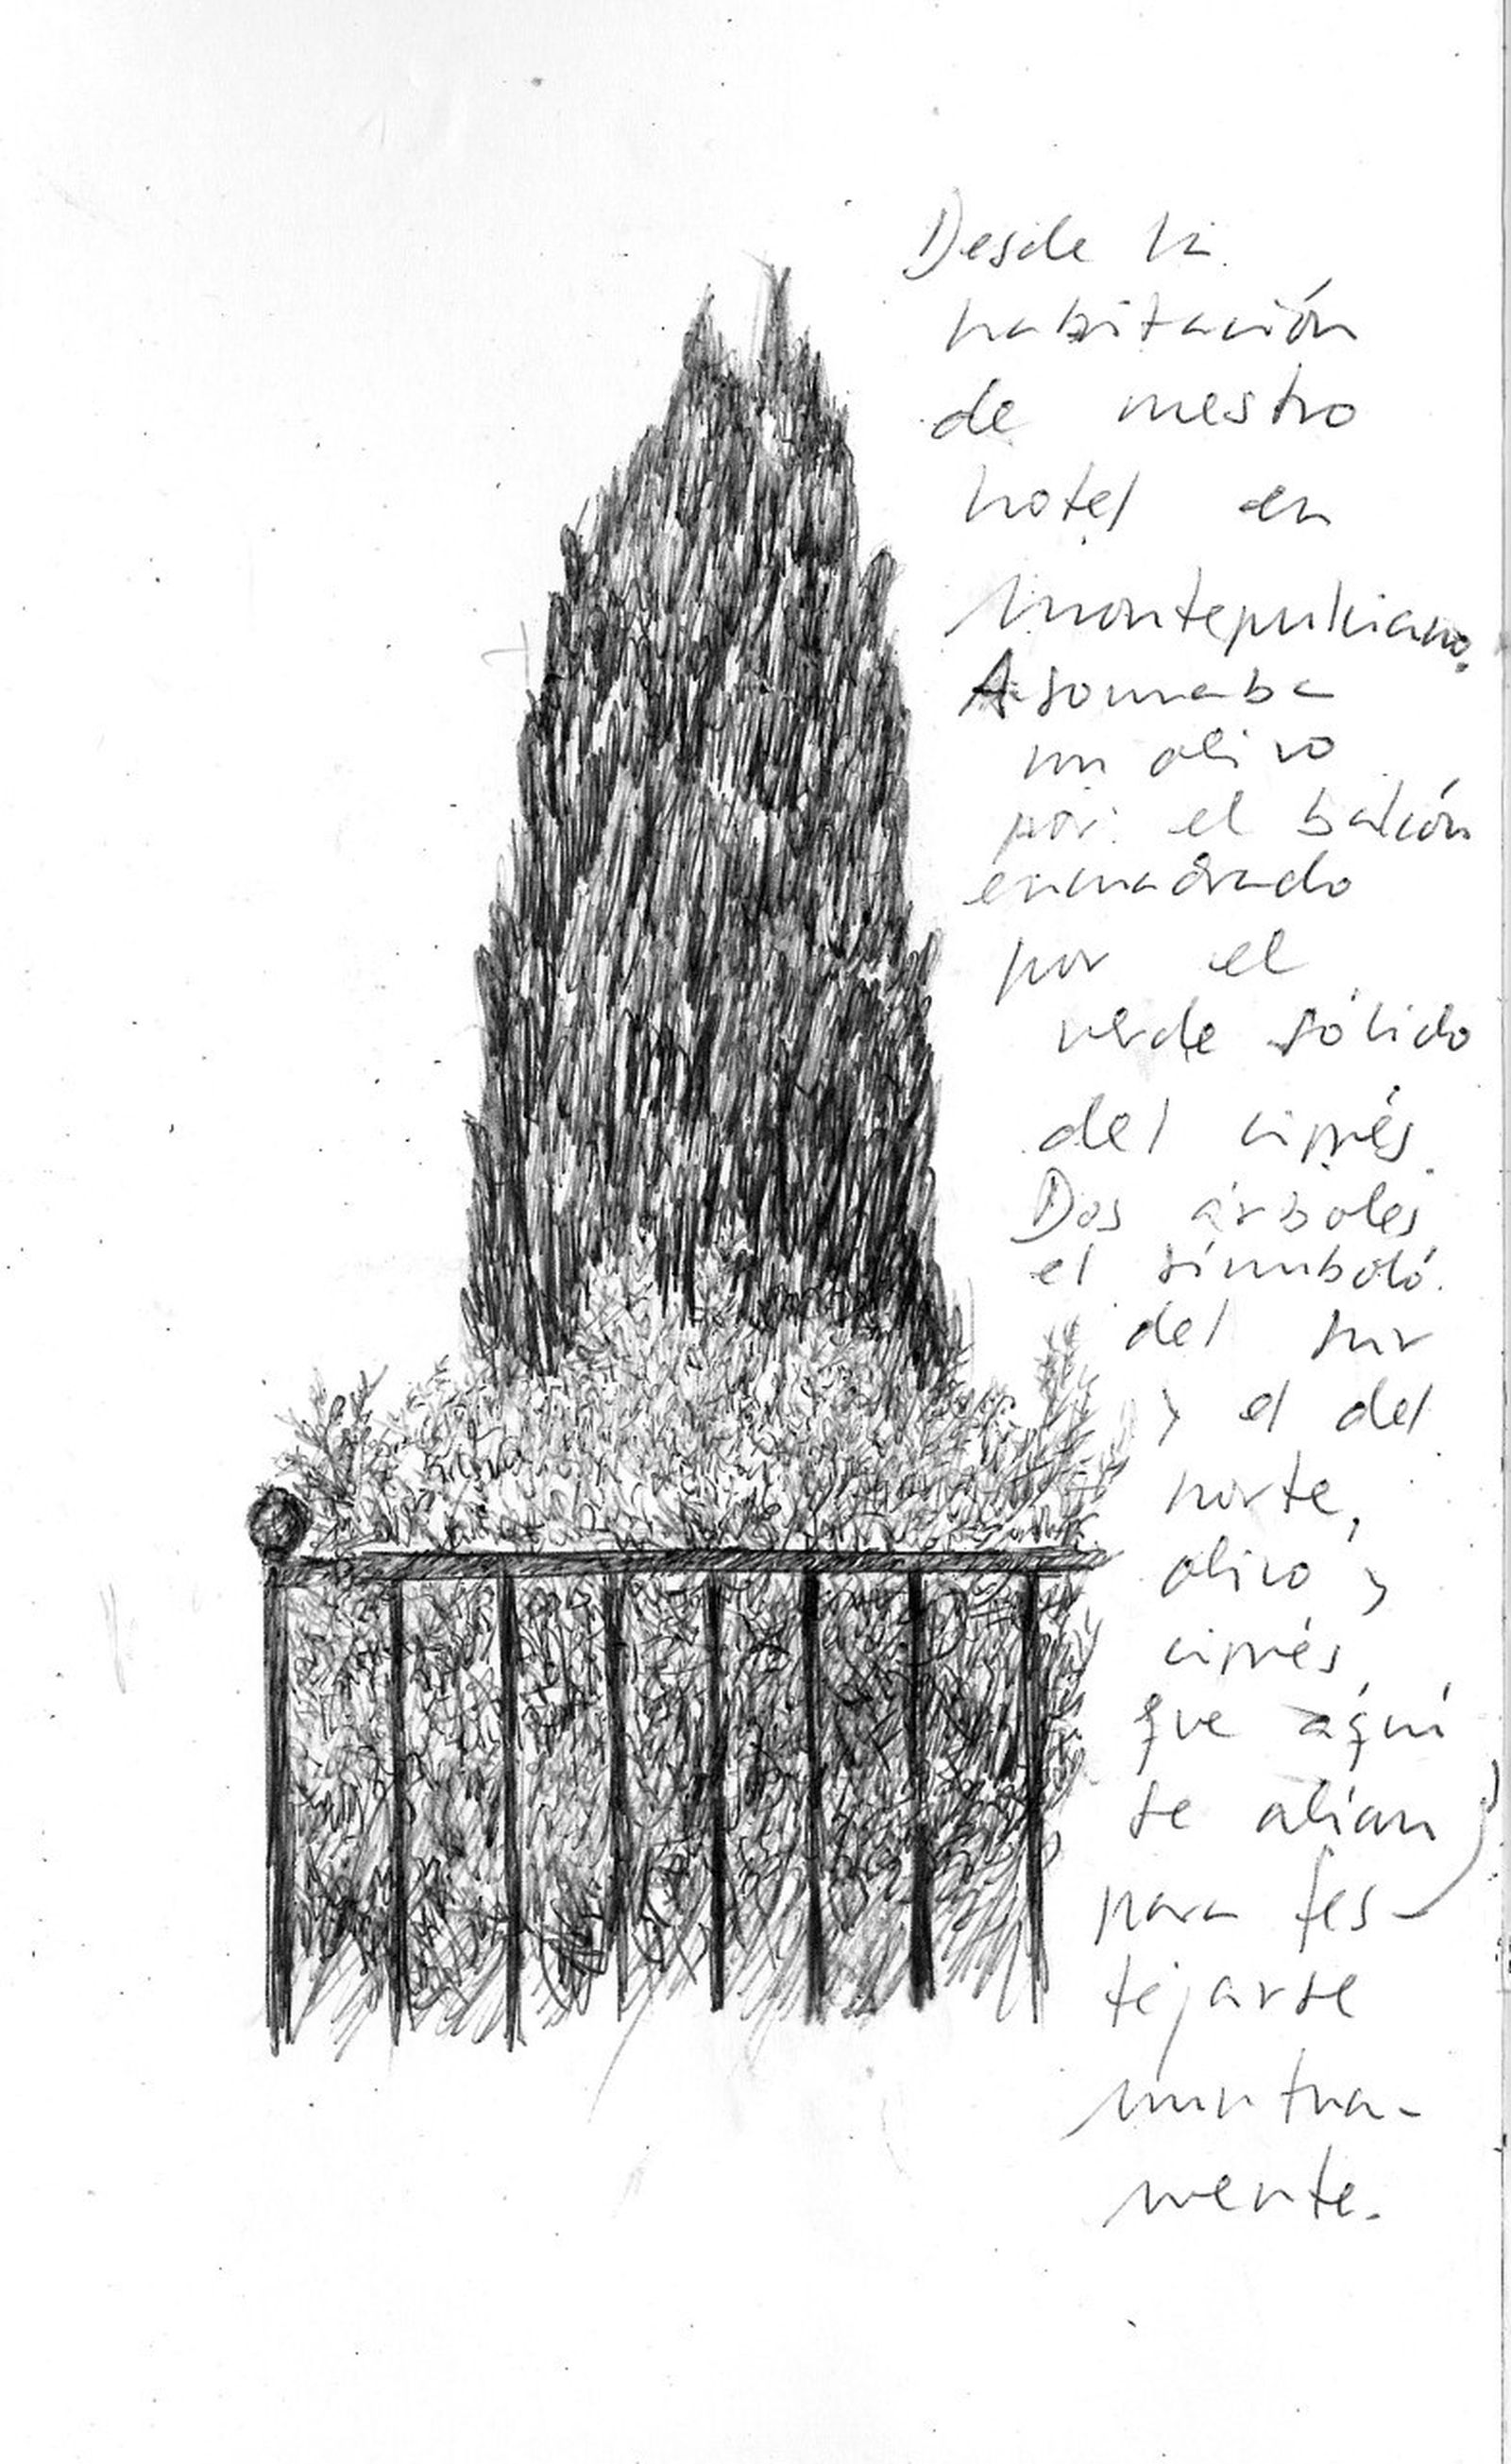 Desde la
habitación
de nuestro
hotel en
Montepulciano.
Asomaba
un olivo
por el balcón
encuadrado
por el
verde sólido
del ciprés.
Dos árboles
el símbolo
del sur
y el del
norte,
olivo y
ciprés
que aquí
se alían
para fes-
tejarse
mutua-
mente.